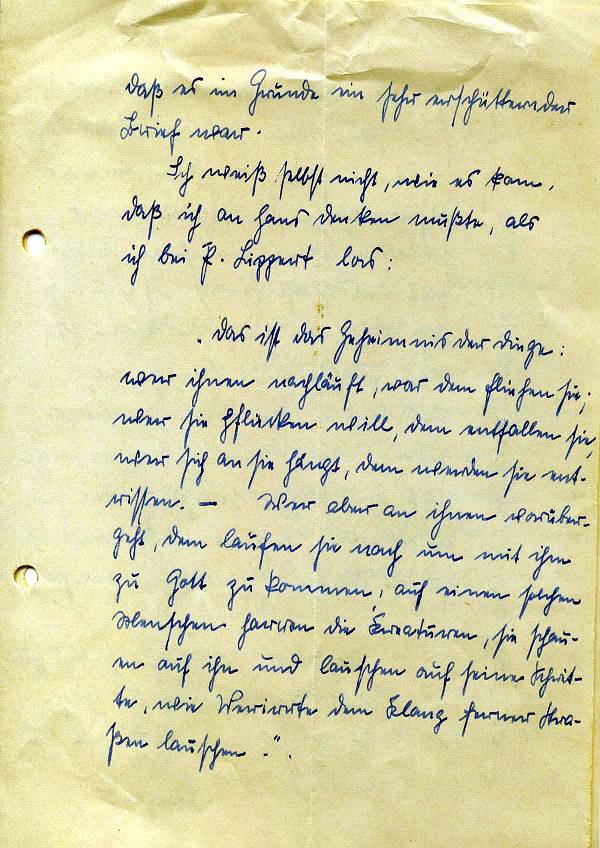 daß es im Grunde ein sehr erschütternder
Brief war.
Ich weiß selbst nicht, wie es kam,
daß ich an Hans denken mußte, als
ich bei P. Lippert las:
"Das ist das Geheimnis der Dinge:
wer ihnen nachläuft, vor dem fliehen sie;
wer sie pflücken will, dem entfallen sie,
wer sich an sie hängt, dem werden sie ent-
rissen. — Wer aber an ihnen vorüber-
geht, dem laufen sie nach um mit ihm
zu Gott zu kommen, auf einen solchen
Menschen harren die Kreaturen, sie schau-
en auf ihn und lauschen auf seine Schrit-
te, wie Verirrte dem Klang ferner Stra-
ßen lauschen.".